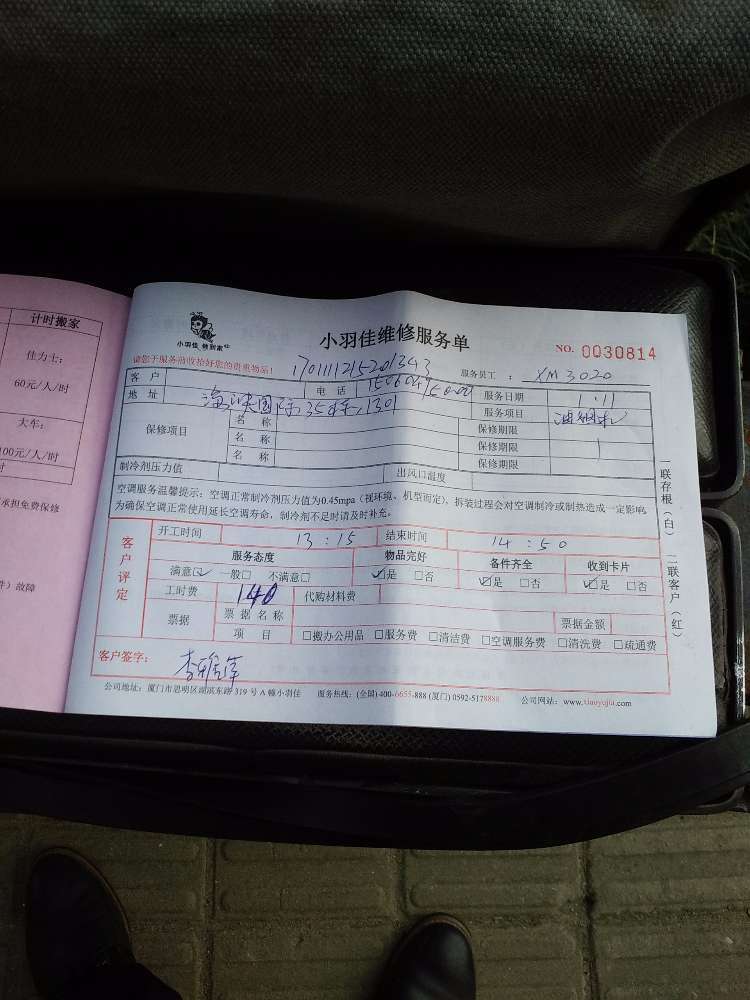 计时搬家
佳力士:
60元/人/时
大车:
100元/人/时
时
承担免费保修
件）故障
小羽佳 特到家
小羽佳维修服务单
NO. 0030814
请您于服务前收拾好您的贵重物品!
1701111215201343
服务员工: XM3020
客户
电话
服务日期 1.11
地址 海峡国际35栋1301
服务项目 油烟机
保修项目
名称
保修期限
名称
保修期限
名称
保修期限
制冷剂压力值
出风口温度
空调服务温馨提示: 空调正常制冷剂压力值为0.45mpa（视环境、机型而定）, 拆装过程会对空调制冷或制热造成一定影响,
为确保空调正常使用延长空调寿命, 制冷剂不足时请及时补充。
客户评定
开工时间 13:15 结束时间 14:50
服务态度 物品完好 备件齐全 收到卡片
满意☑ 一般□ 不满意□ ☑是 □否 ☑是 □否 ☑是 □否
工时费 140 代购材料费
票据 票据名称 票据金额
项目 □搬办公用品 □服务费 □清洁费 □空调服务费 □清洗费 □疏通费
客户签字:
公司地址: 厦门市思明区湖滨东路 319 号 A 幢小羽佳 服务热线: (全国) 400-6655-888 (厦门) 0592-5178888 公司网站: www.xiaoyujia.com
一联存根（白） 二联客户（红）